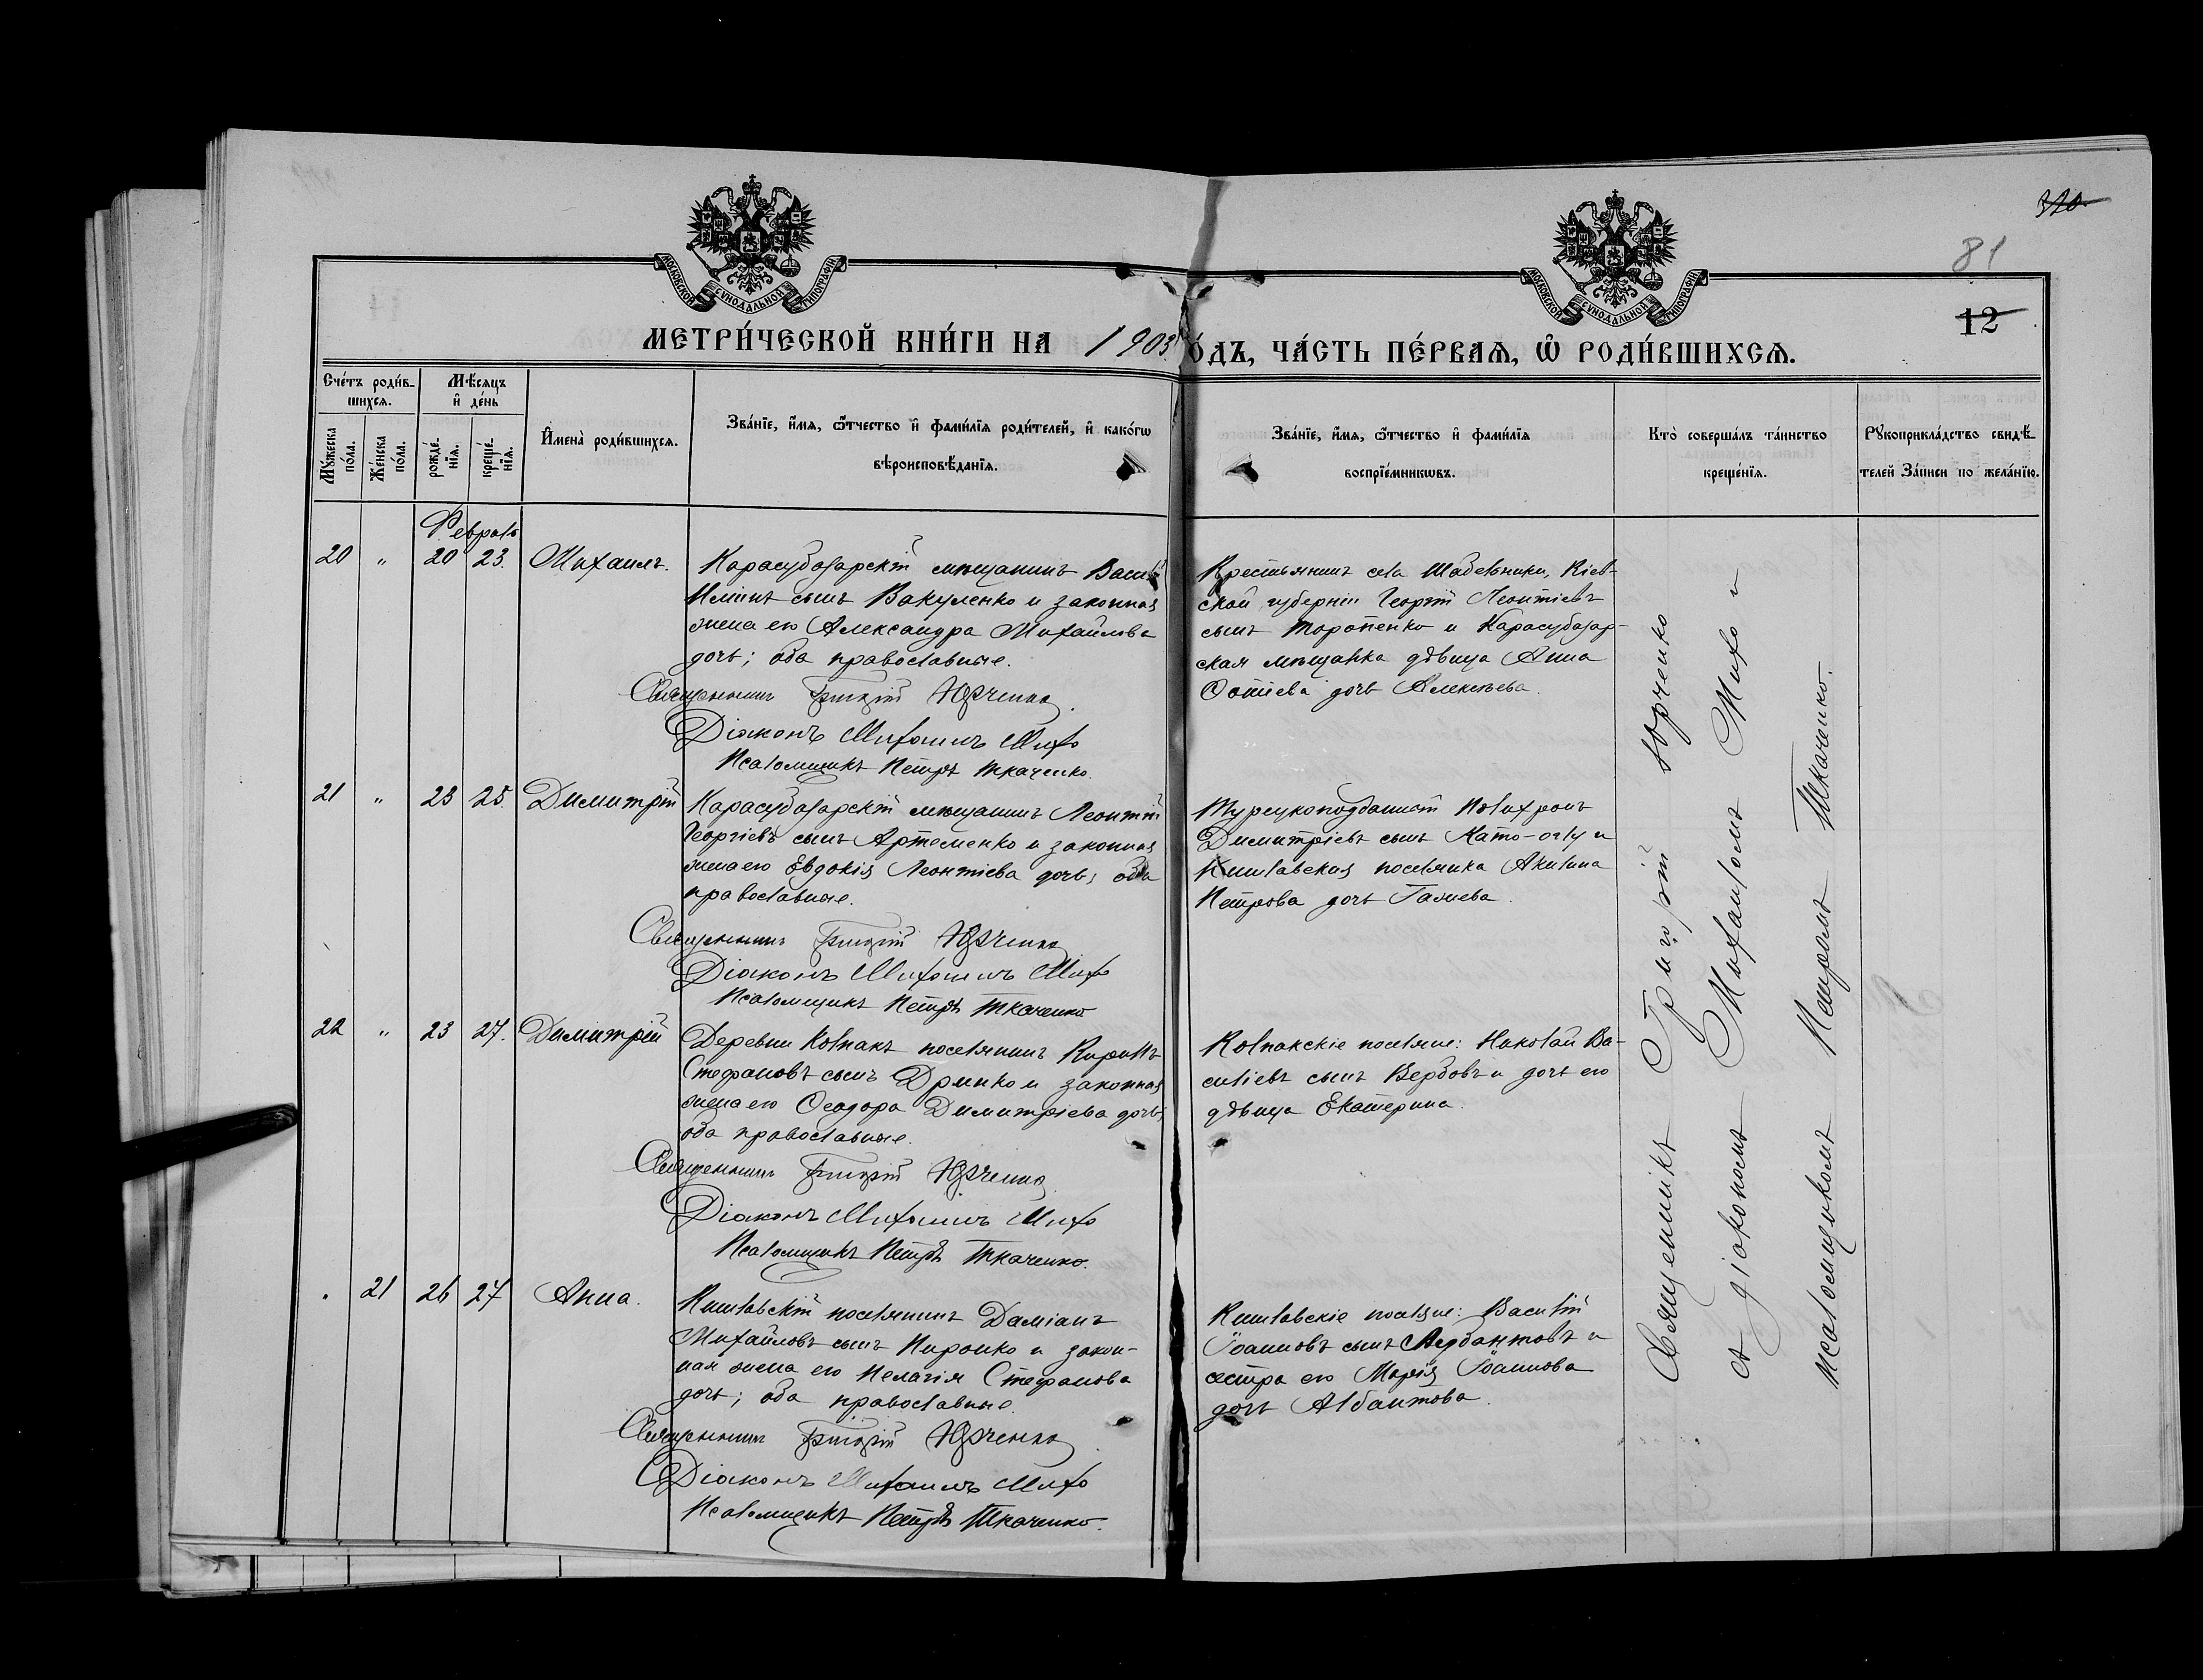 320
81
12
МОСКОВСКОЙ СѴНОДАЛЬНОЙ ТИПОГРАФІИ
МОСКОВСКОЙ СѴНОДАЛЬНОЙ ТИПОГРАФІИ
МЕТРИ́ЧЕСКОЙ КНИ́ГИ НА 1903 ГО́ДЪ, ЧА́СТЬ ПЕ́РВАѦ, Ѽ РОДИ́ВШИХСѦ.
Сче́тъ роди́в-
шихсѧ.
Мꙋ́жеска по́ла.
Же́нска по́ла.
Мѣ́сѧцъ
и҆ де́нь
рожде́-
нїѧ.
креще́-
нїѧ.
И҆мена̀ роди́вшихсѧ.
Зва́нїе, и҆́мѧ, ѻ҆́тчество и҆ фами́лїѧ роди́телей, и҆ како́гѡ
вѣроисповѣ́данїѧ.
Зва́нїе, и҆́мѧ, ѻ҆́тчество и҆ фами́лїѧ
воспрїе́мникѡвъ.
Кто̀ соверша́лъ та́инство
креще́нїѧ.
Рꙋкоприкла́дство свидѣ́-
телей За́писи по жела́нїю.
Февраль
20 " 20 23. Михаилъ.
Карасубазарскій мѣщанинъ Васи
сынъ Вакуленко и законная
жена его Александра Михайлова
дочь; оба православные.
Священникъ Григорій Юрченко.
Діаконъ Михаилъ Михо
Псаломщикъ Петръ Ткаченко.
Крестьянинъ села Шабельники, Кіев-
ской губерніи Георгій Леонтіевъ
сынъ Торопенко и Карасубазар-
ская мѣщанка дѣвица Анна
дочь Алексѣева.
21 " 23 25. Димитрій
Карасубазарскій мѣщанинъ Леонтій
Георгіевъ сынъ Артеменко и законная
жена его Евдокія Леонтіева дочь; оба
православные.
Священникъ Григорій Юрченко
Діаконъ Михаилъ Михо
Псаломщикъ Петръ Ткаченко
Турецкоподданный Полихронъ
Димитріевъ сынъ Като-оглу и
Кишлавская поселянка Акилина
Петрова дочь Галиева.
22 " 23 27. Димитрій
Деревни Колпакъ поселянинъ Кириллъ
Стефановъ сынъ Дринко и законная
жена его Ѳеодора Димитріева дочь;
оба православные.
Священникъ Григорій Юрченко
Діаконъ Михаилъ Михо
Псаломщикъ Петръ Ткаченко.
Колпакскіе поселяне: Николай Ва-
силіевъ сынъ Вербовъ и дочь его
дѣвица Екатерина.
. 21 26 27 Анна.
Кишлавскій поселянинъ Даміанъ
Михайловъ сынъ Пиронко и закон-
ная жена его Пелагія Стефанова
дочь; оба православные.
Священникъ Григорій Юрченко.
Діаконъ Михаилъ Михо
Псаломщикъ Петръ Ткаченко.
Кишлавскіе поселяне: Василій
Іоанновъ сынъ Албантовъ и
сестра его Марія Іоаннова
дочь Албантова.
Священникъ Григорій Юрченко
съ діакономъ Михаиломъ Михо и
псаломщикомъ Петромъ Ткаченко.